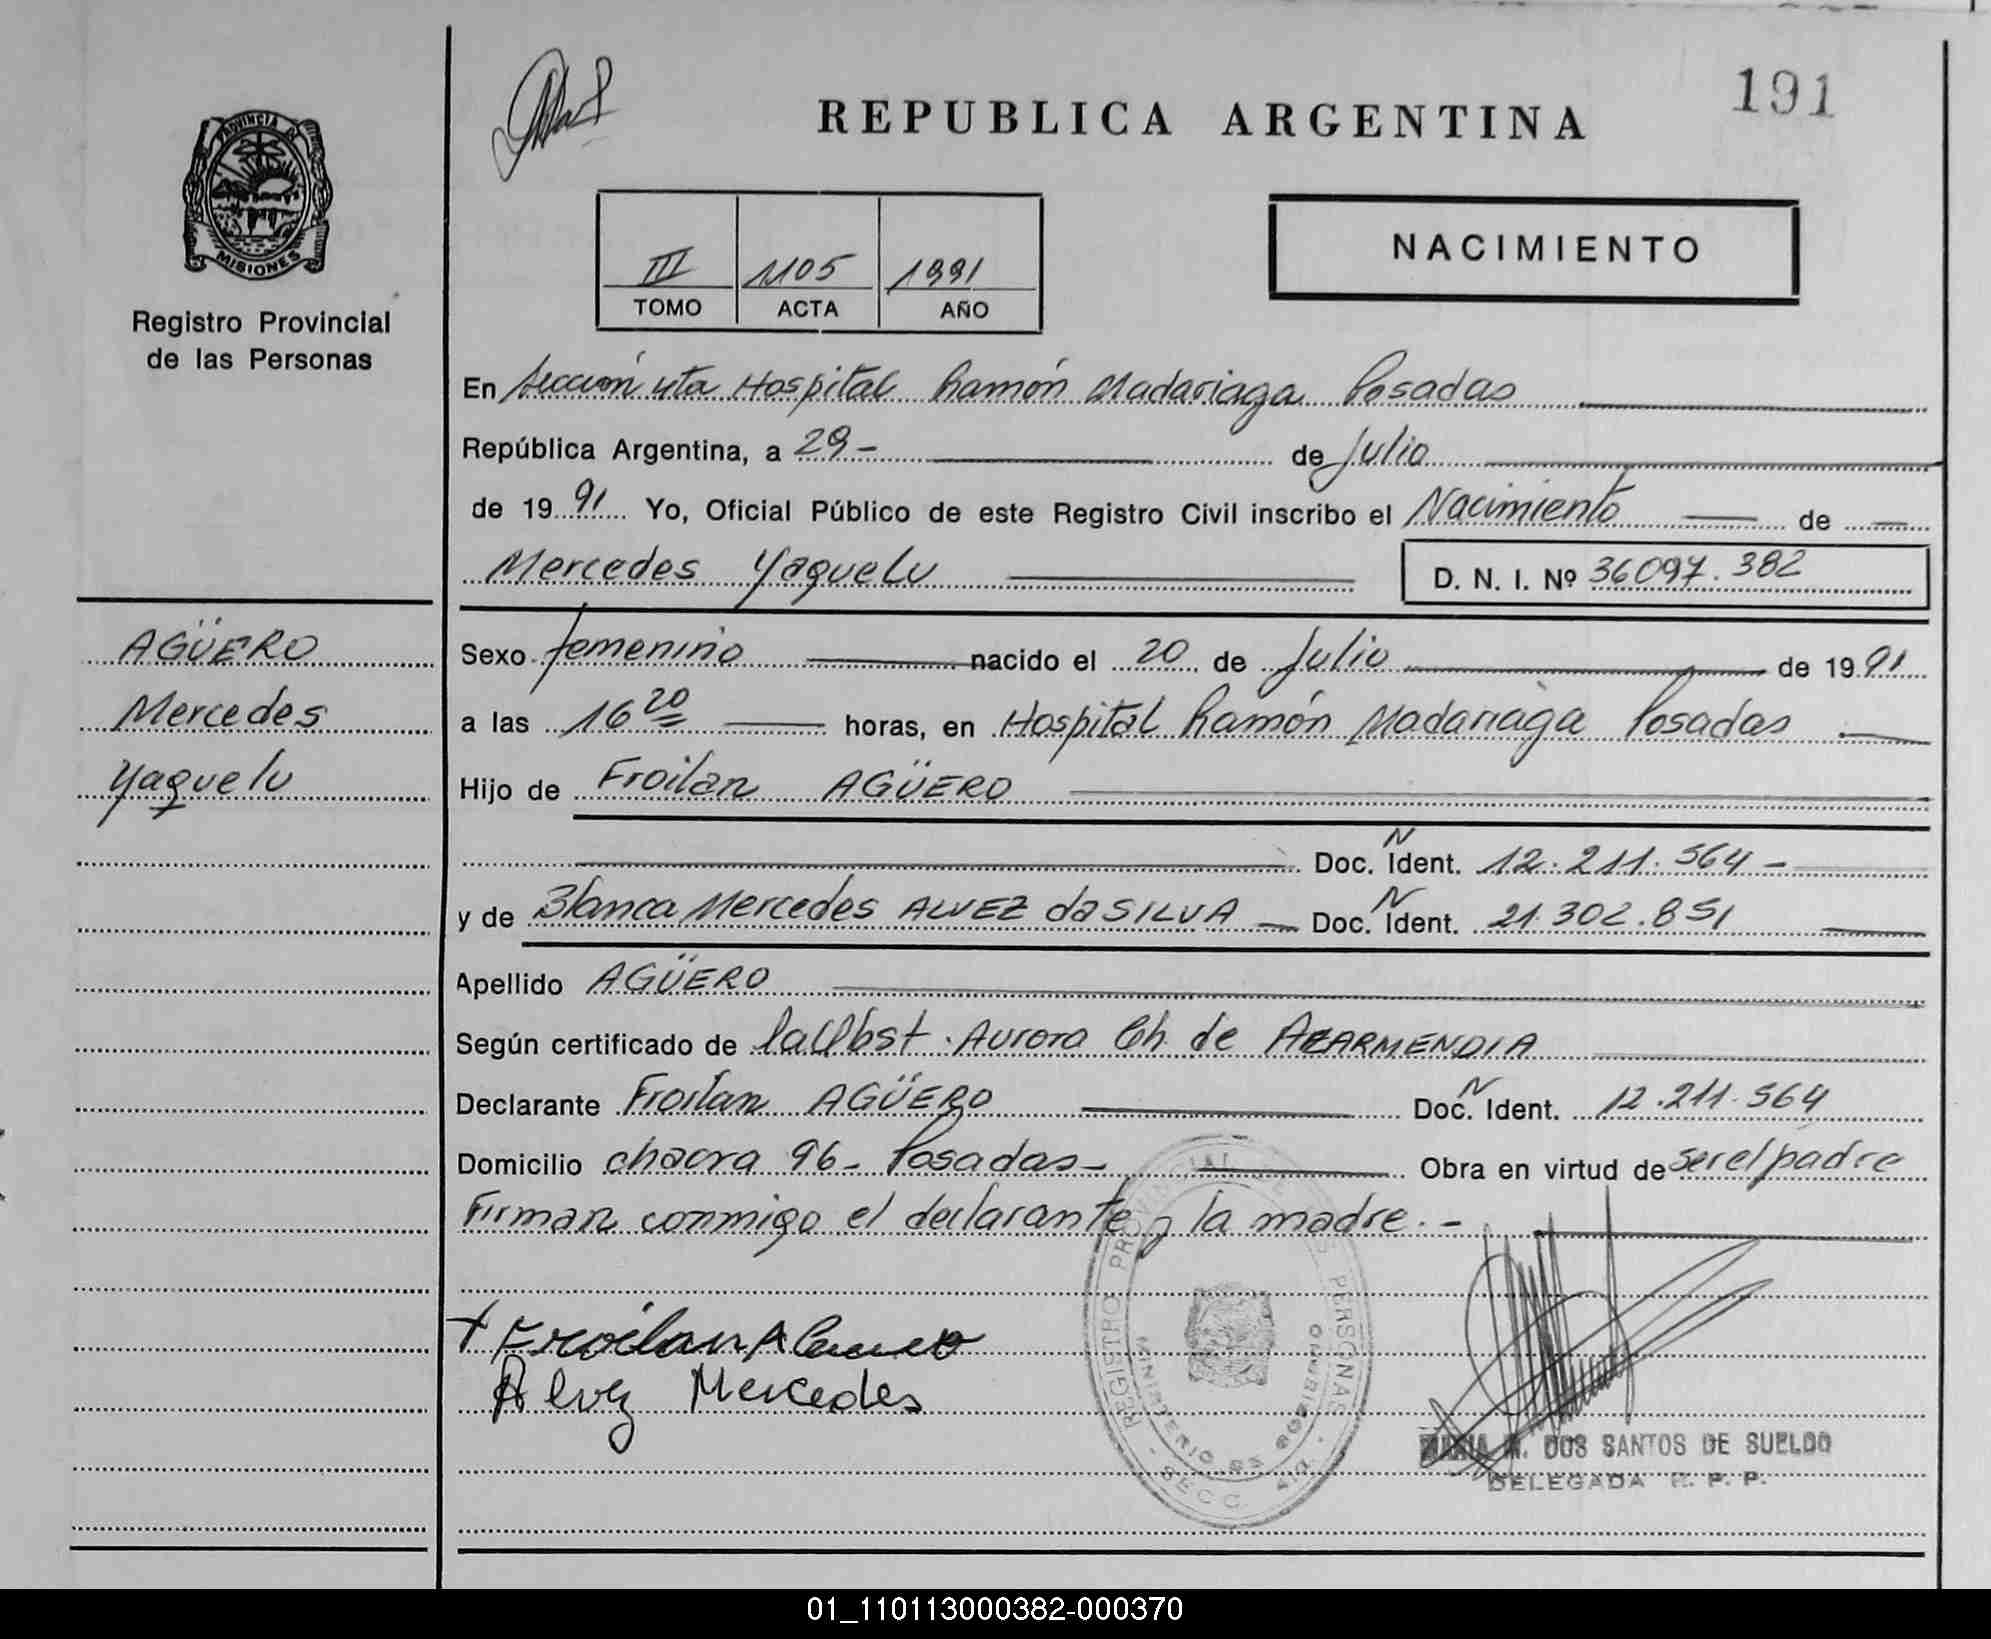 191
REPUBLICA ARGENTINA
PROVINCIA DE
MISIONES
Registro Provincial
de las Personas
NACIMIENTO
III 1105 1991
TOMO ACTA AÑO
En Sección 4ta Hospital Ramón Madariaga Posadas
República Argentina, a 29- de Julio
de 1991 Yo, Oficial Público de este Registro Civil inscribo el Nacimiento de
Mercedes Yaquelu D. N. I. Nº 36097.382
AGÜERO
Mercedes
Yaquelu
Sexo femenino nacido el 20 de Julio de 1991
a las 16 20 horas, en Hospital Ramón Madariaga Posadas
Hijo de Froilan AGÜERO
Doc. N Ident. 12.211.564-
y de Blanca Mercedes ALVEZ da SILVA Doc. N Ident. 21.302.851
Apellido AGÜERO
Según certificado de la Obst. Aurora Ch. de AZARMENDIA
Declarante Froilan AGÜERO Doc. N Ident. 12.211.564
Domicilio chacra 96- Posadas- Obra en virtud de ser el padre
Firman conmigo el declarante y la madre.-
Froilan
Alvez Mercedes
REGISTRO PROVINCIAL DE LAS PERSONAS
MINISTERIO DE GOBIERNO
SECC.
DOS SANTOS DE SUELDO
DELEGADA R. P. P.
01_110113000382-000370